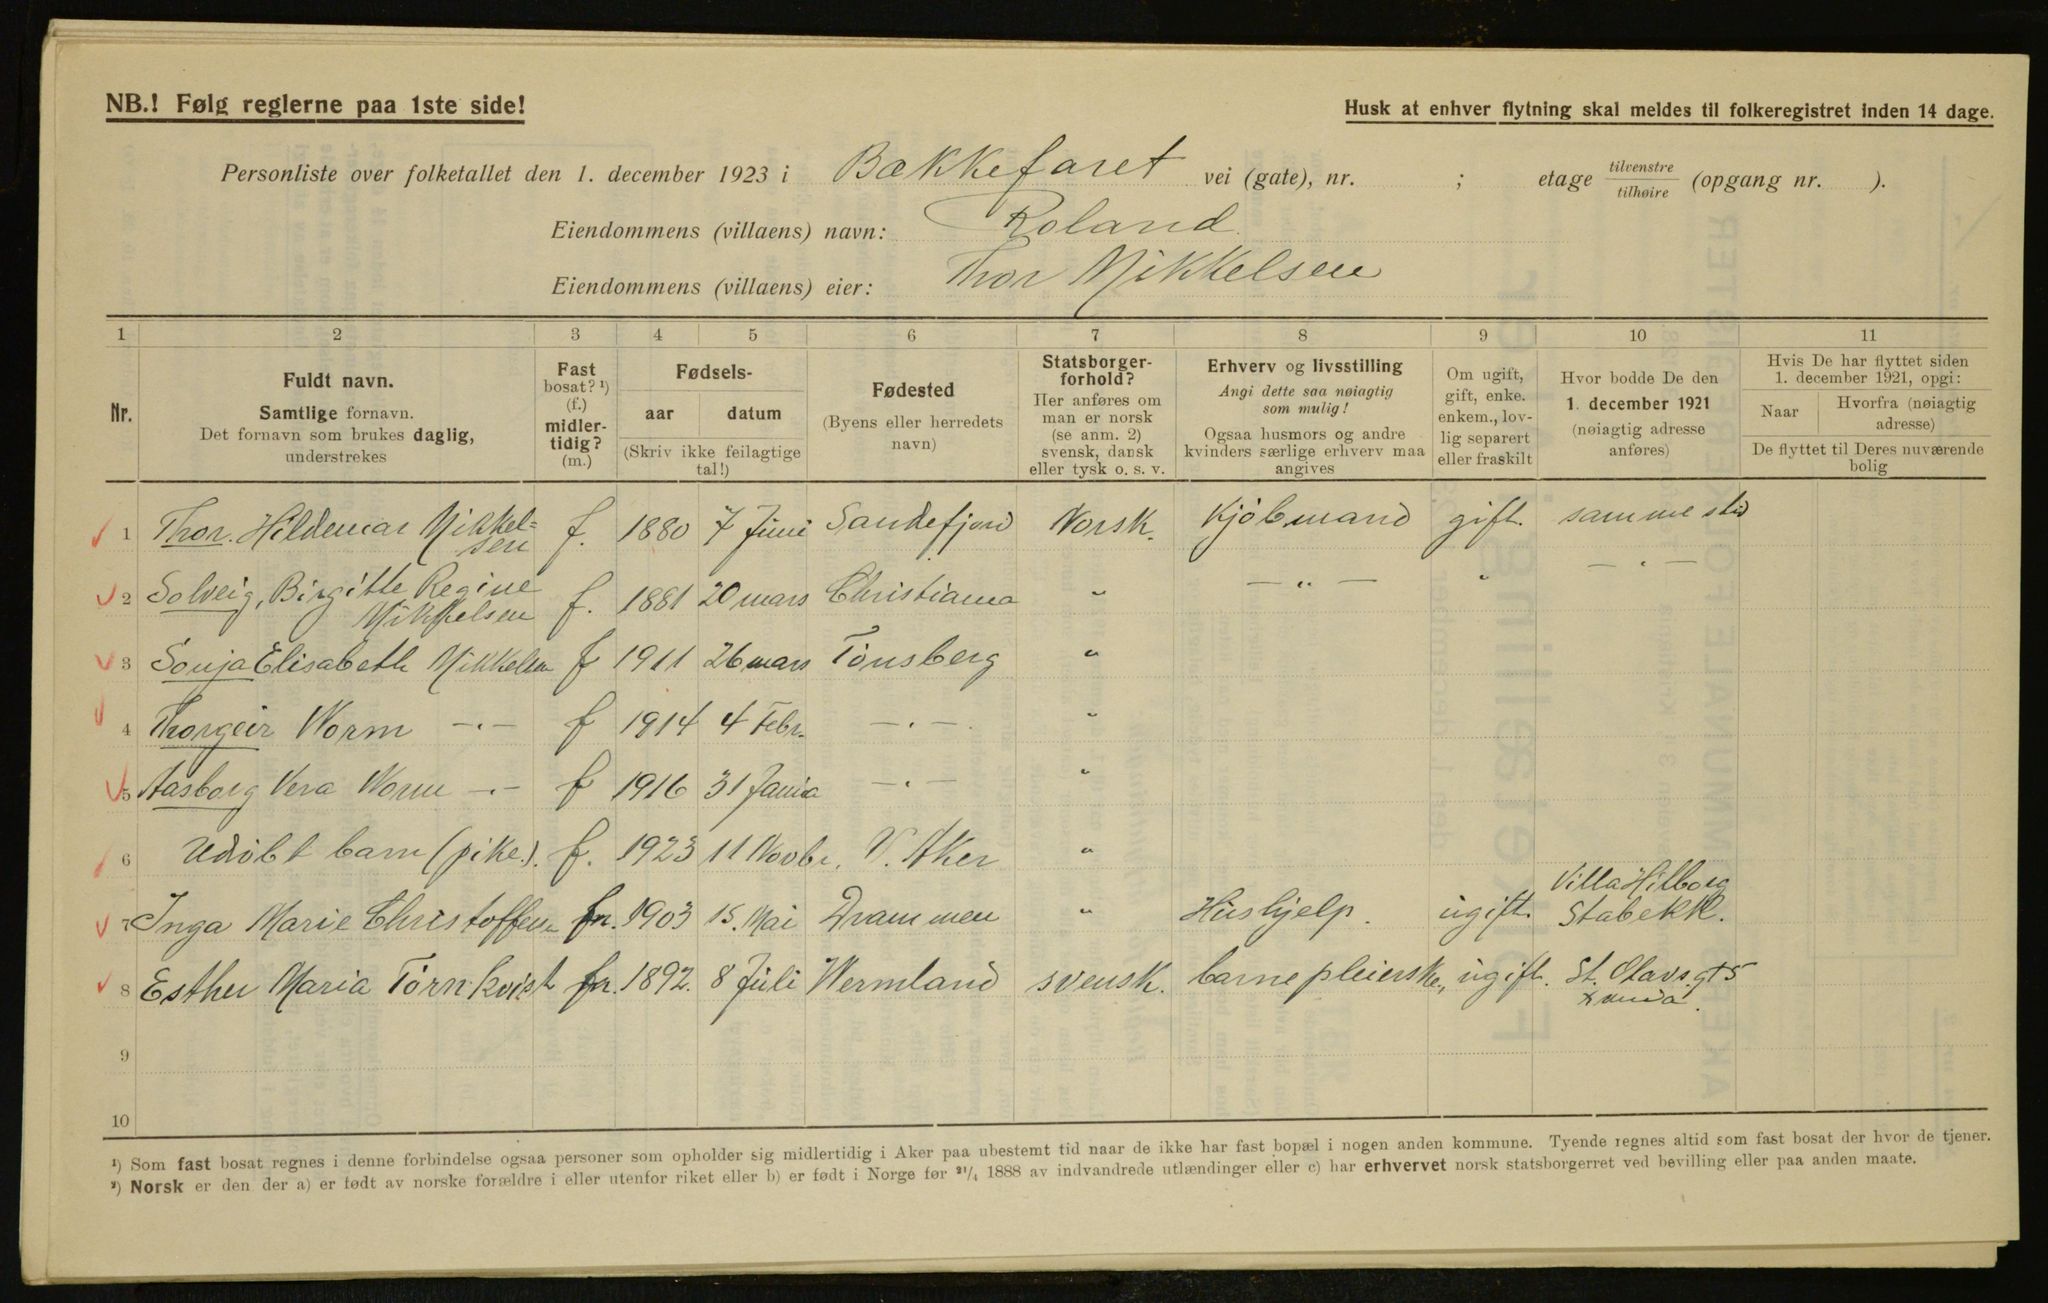 NB.! Følg reglerne paa 1ste side!
Husk at enhver flytning skal meldes til folkeregistret inden 14 dage.
Personliste over folketallet den 1. december 1923 i Bækkefaret vei (gate), nr. ; etage tilvenstre tilhøire (opgang nr. ).
Eiendommens (villaens) navn: Roland.
Eiendommens (villaens) eier: Thor Mikkelsen
1 2 3 4 5 6 7 8 9 10 11
Nr.
Fuldt navn.
Samtlige fornavn.
Det fornavn som brukes daglig,
understrekes
Fast
bosat? ¹)
(f.)
midler-
tidig?
(m.)
Fødsels-
aar datum
(Skriv ikke feilagtige
tal!)
Fødested
(Byens eller herredets
navn)
Statsborger-
forhold?
Her anføres om
man er norsk
(se anm. 2)
svensk, dansk
eller tysk o. s. v.
Erhverv og livsstilling
Angi dette saa nøiagtig
som mulig!
Ogsaa husmors og andre
kvinders særlige erhverv maa
angives
Om ugift,
gift, enke.
enkem., lov-
lig separert
eller fraskilt
Hvor bodde De den
1. december 1921
(nøiagtig adresse
anføres)
Hvis De har flyttet siden
1. december 1921, opgi:
Naar
Hvorfra (nøiagtig
adresse)
De flyttet til Deres nuværende
bolig
1 Thor. Hildemar Mikkel=
sen f. 1880 7 Juni Sandefjord Norsk. Kjöbmand gift. samme sted
2 Solveig, Birgitte Regine
Mikkelsen f. 1881 20 mars Christiania " — " — " — " —
3 Sonja Elisabeth Mikkelsen f 1911 26 mars Tönsberg "
4 Thorgeir Worm —"— f 1914 4 Febr. —"— "
5 Aasborg Vera Worm —"— f 1916 31 Janua —"— "
6 Udöbt barn (pike.). f. 1923 11 Novbr. V. Aker "
7 Inga Marie Christoffersen 1903 15. Mai Drammen " Hushjelp. ugift. Villa Hilborg
Stabekk.
8 Esther Maria Törnkvist 1892. 8 Juli Wermland svensk. barnepleierske, ugift. St. Olavs.gt 5
9
10
¹) Som fast bosat regnes i denne forbindelse ogsaa personer som opholder sig midlertidig i Aker paa ubestemt tid naar de ikke har fast bopæl i nogen anden kommune. Tyende regnes altid som fast bosat der hvor de tjener.
²) Norsk er den der a) er født av norske forældre i eller utenfor riket eller b) er født i Norge før ²¹/₄ 1888 av indvandrede utlændinger eller c) har erhvervet norsk statsborgerret ved bevilling eller paa anden maate.